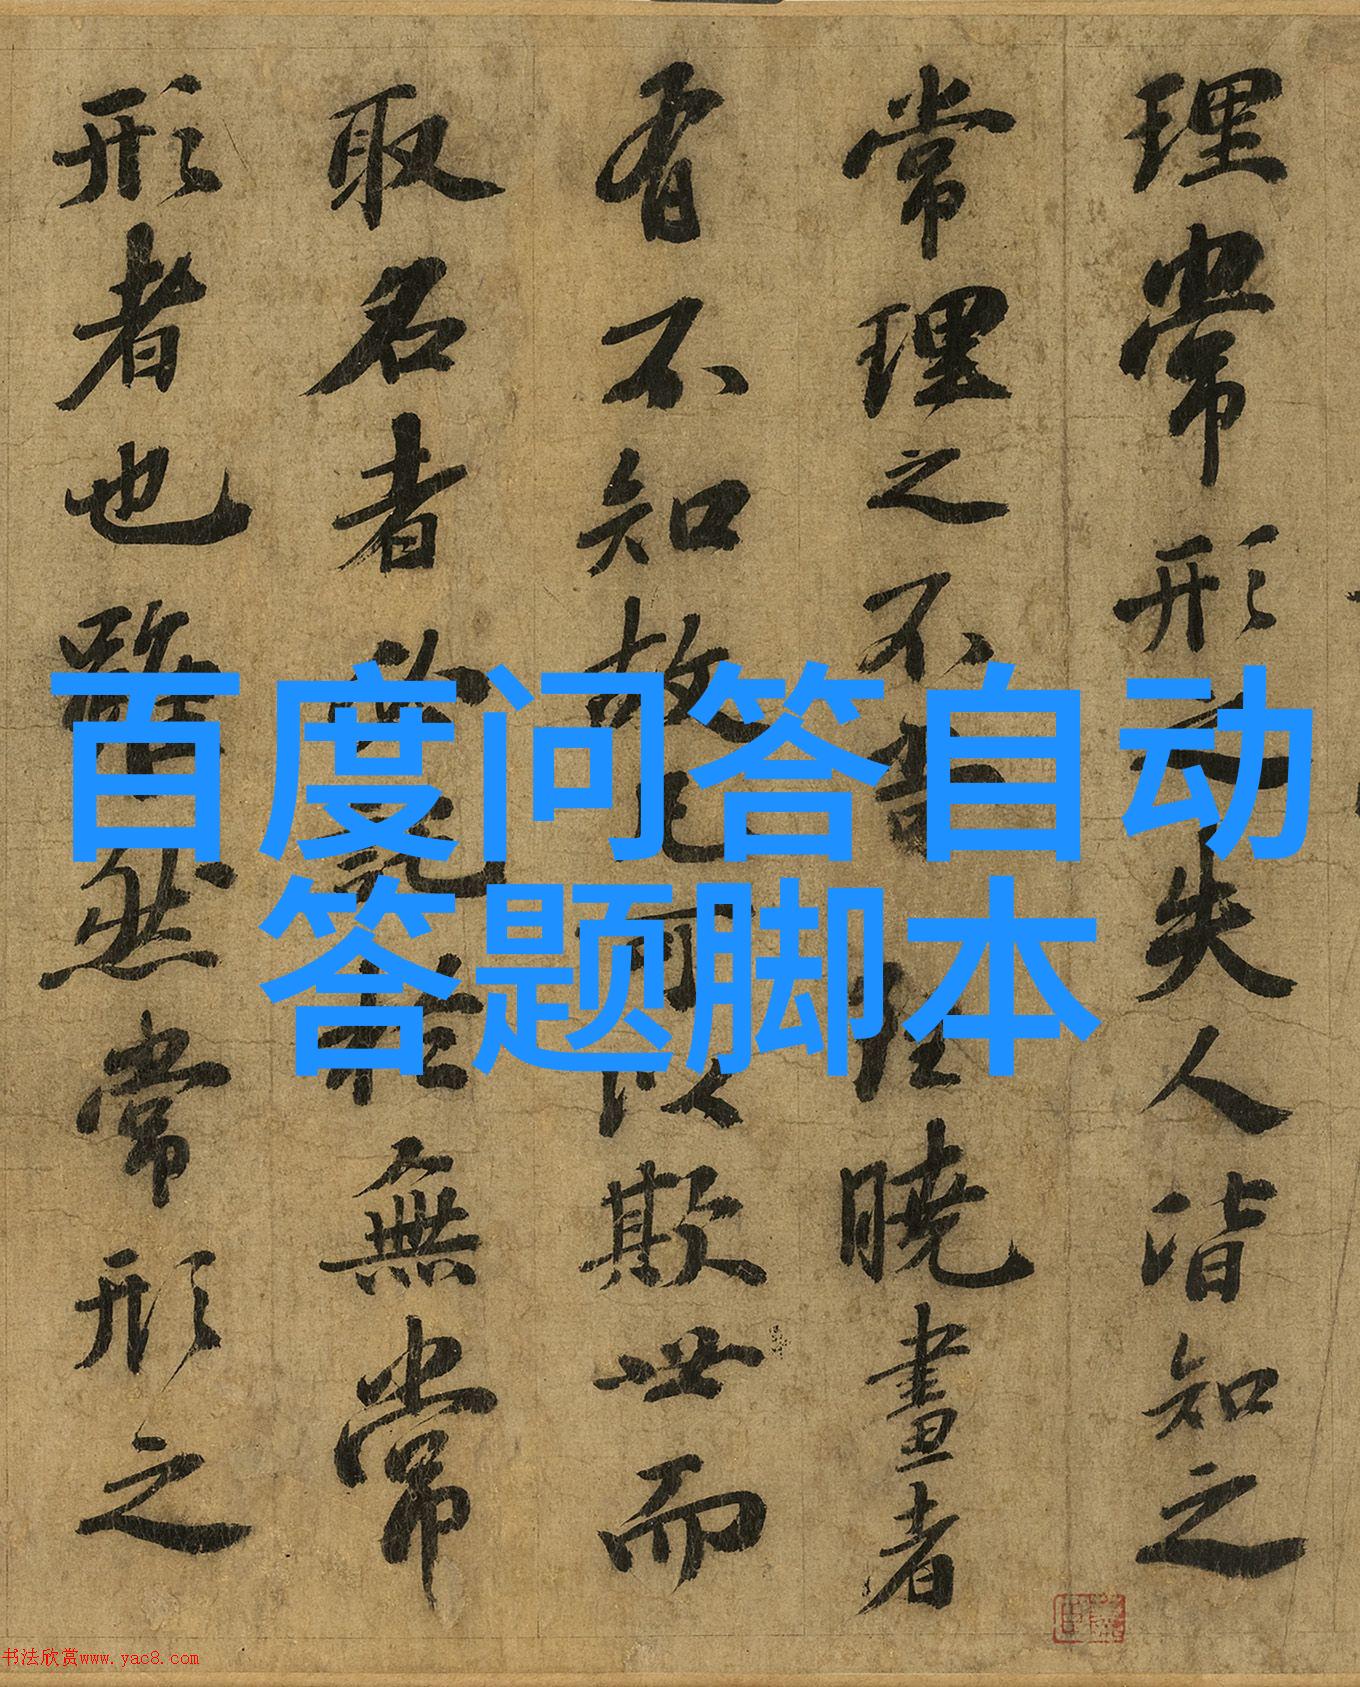 理常形之失人皆知之
常理之不曉畫者
有不知故凡可以欺世而
取名者於無常
形者也雖然常形之
百度问答自动
答题脚本
书法欣赏www.yac8.com